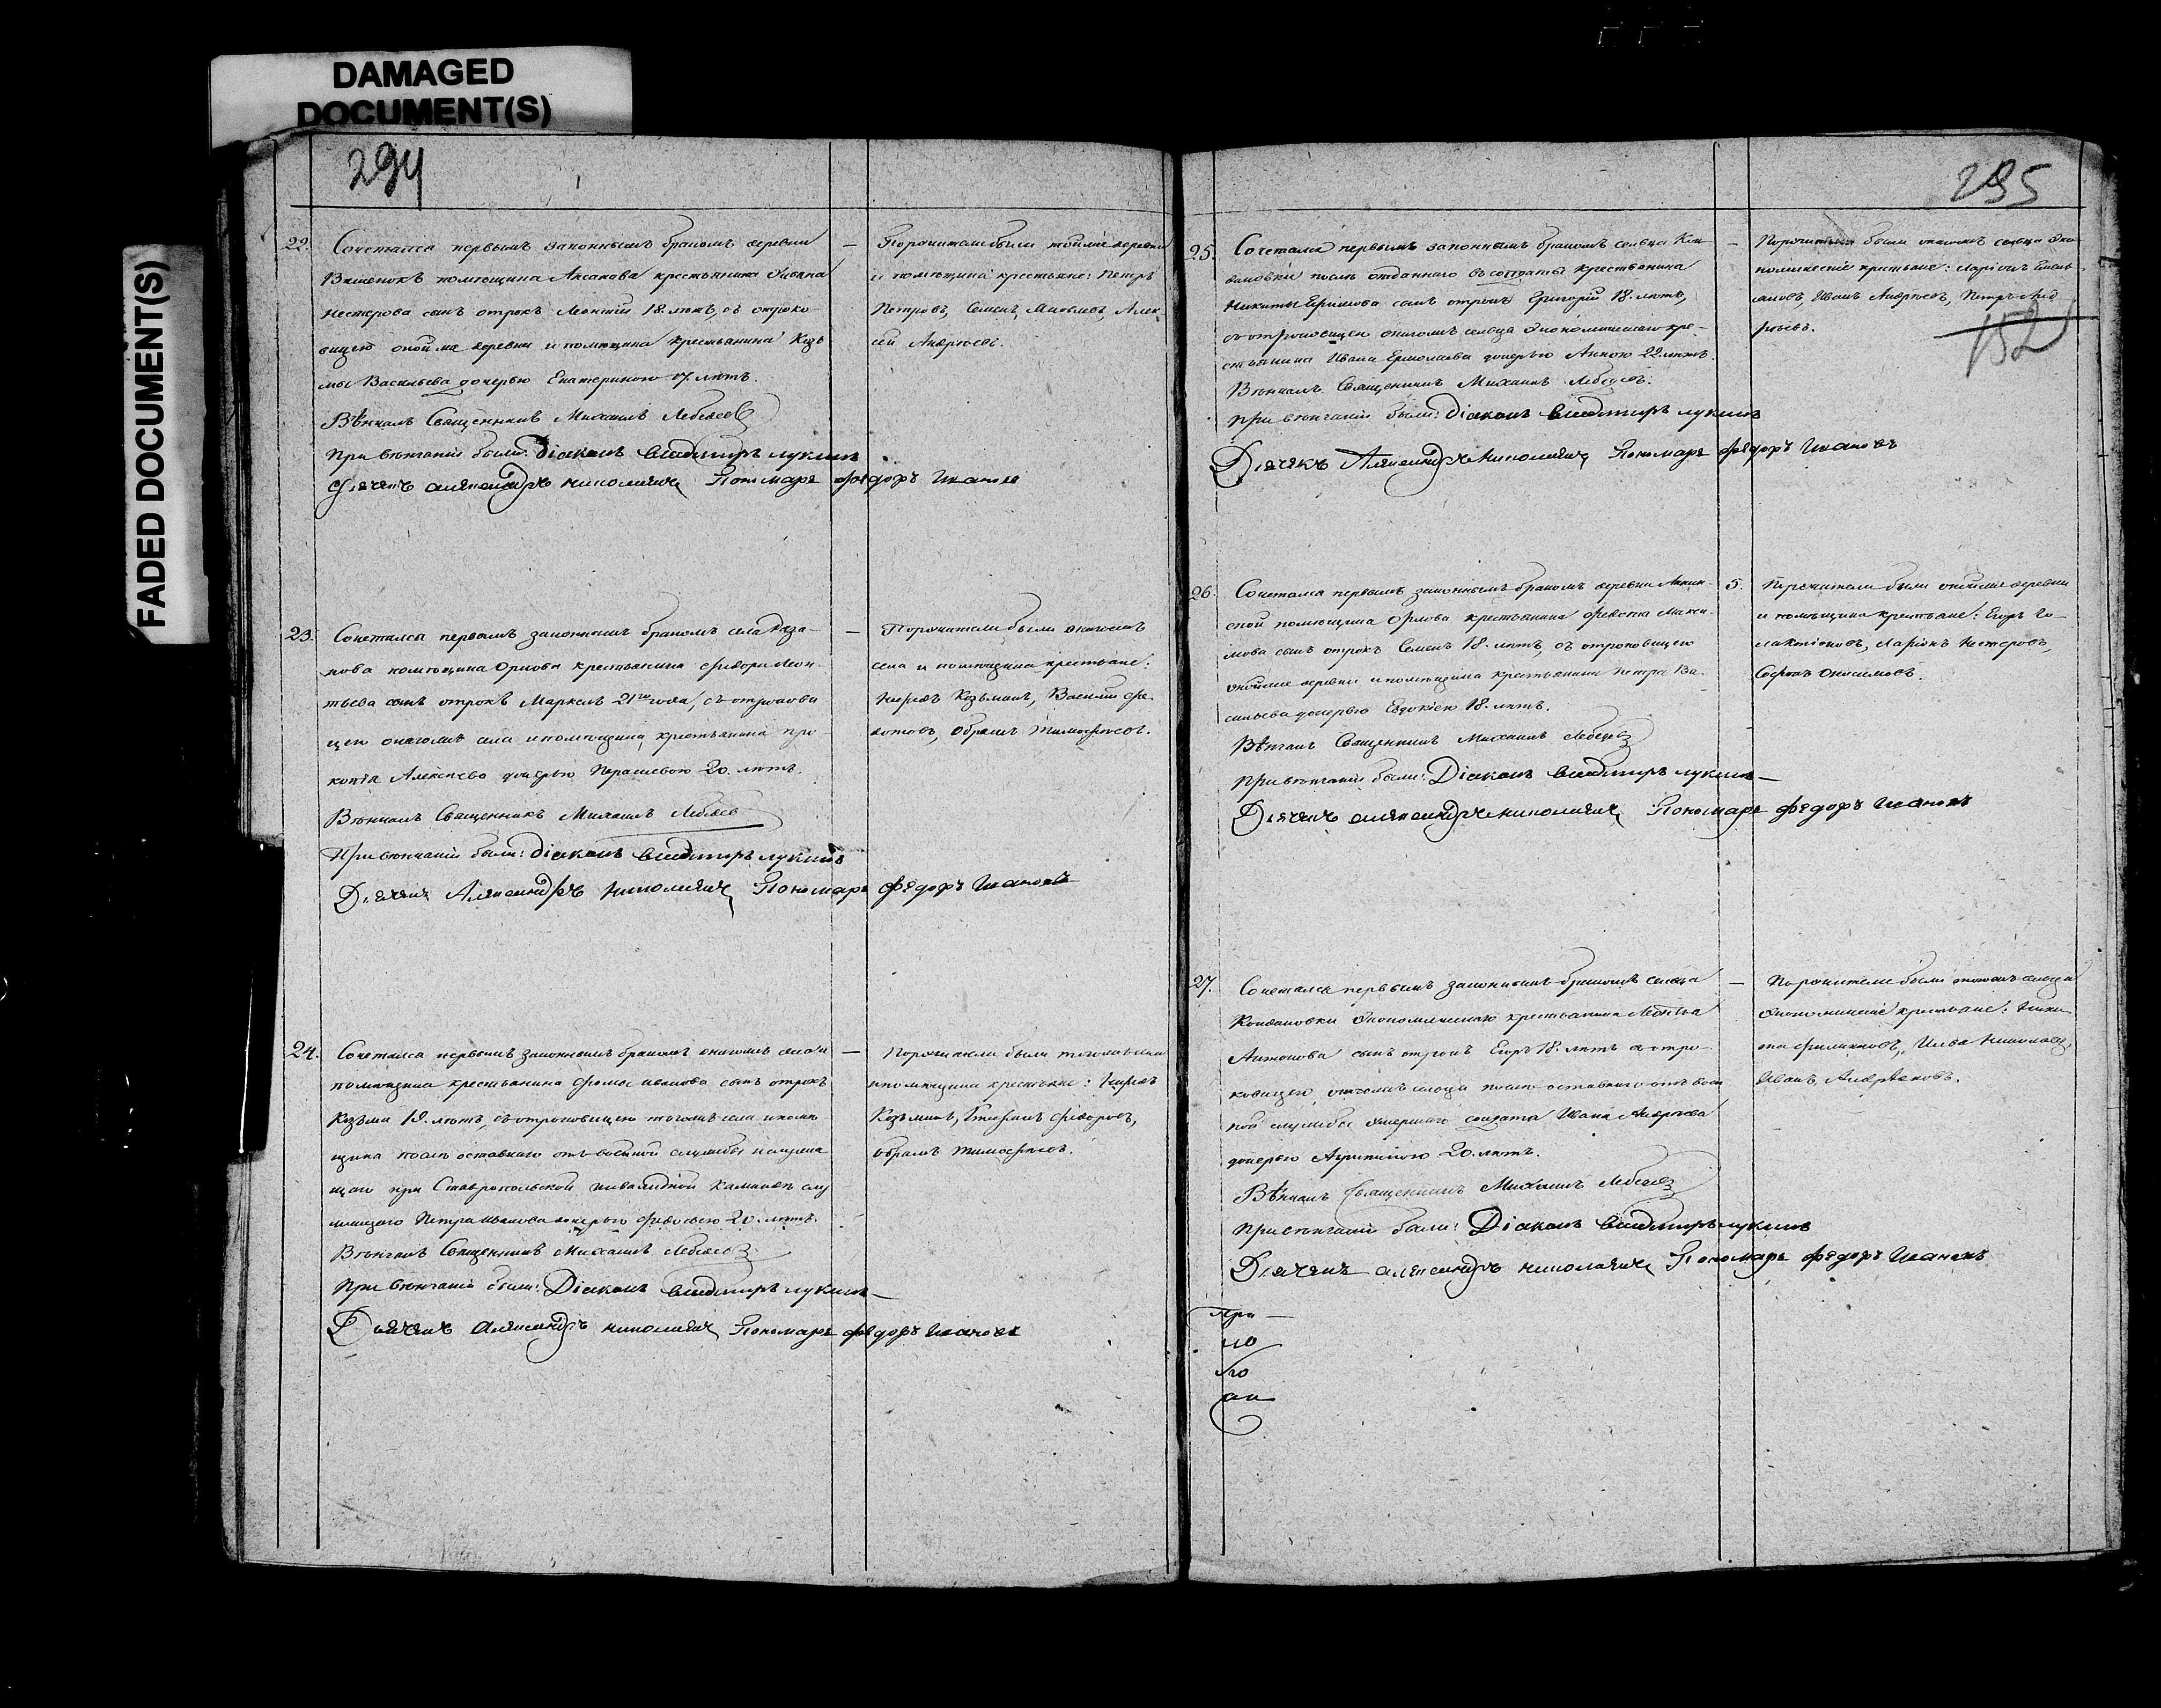 DAMAGED
DOCUMENT(S)
FADED DOCUMENT(S)
294
22. Сочетался первымъ законнымъ бракомъ деревни
помѣщика Аксакова крестьянина
Нестерова сынъ отрокъ Леонтій 18. лѣтъ, съ отроко-
вицею оной же деревни и помѣщика крестьянина Козь
мы Васильева дочерью Екатериною 17. лѣтъ.
Вѣнчалъ Священникъ Михаилъ Лебедев
При вѣнчаніи были: Діаконъ Владимиръ Лукинъ
Дьячекъ Александръ Николаевъ Пономарь Федоръ Иванов
— Поручители были той же деревни
и помѣщика крестьяне: Петръ
Петровъ, Семенъ Алек
сей Андреевъ.
23. Сочетался первымъ законнымъ бракомъ села
помѣщика Орлова крестьянина Федора Леон
тьева сынъ отрокъ Маркелъ 21го года, съ отрокови
цею онагожъ села и помѣщика, крестьянина Про
копія Алексѣева дочерью Параскевою 20. лѣтъ.
Вѣнчалъ Священникъ Михаилъ Лебедев
При вѣнчаніи были: Діаконъ Владимиръ Лукинъ
Дьячекъ Александръ Николаевъ Пономарь Федоръ Ивановъ
— Поручители были онагожъ
села и помѣщика крестьяне:
Козьминъ, Василій Фе
дотовъ, Абрамъ Тимофеевъ.
24. Сочетался первымъ законнымъ бракомъ онагожъ села и
помѣщика крестьянина Фомы Иванова сынъ отрокъ
Козьма 18. лѣтъ, съ отроковицею тогожъ села и помѣ
щика послѣ оставшаго отъ военной службы
при Ставропольской инвалидной командѣ слу
жащаго Петра Иванова дочерью Федосьею 20. лѣтъ.
Вѣнчалъ Священникъ Михаилъ Лебедев
При вѣнчаніи были: Діаконъ Владимиръ Лукинъ
Дьячекъ Александръ Николаевъ Пономарь Федоръ Ивановъ
— Поручители были тогожъ села
и помѣщика крестьяне:
Козьминъ, Федоровъ,
Абрамъ Тимофеевъ.
295
152
25. Сочетался первымъ законнымъ бракомъ сельца Кон
даковки послѣ отданнаго въ солдаты крестьянина
Никиты Ефимова сынъ отрокъ Григорій 18. лѣтъ,
съ отроковицею онагожъ сельца Экономическаго кре-
стьянина Ивана Ермолаева дочерью Анною 22 лѣтъ.
Вѣнчалъ Священникъ Михаилъ Лебедев.
При вѣнчаніи были: Діаконъ Владимиръ Лукинъ
Дьячекъ Александръ Николаевъ Пономарь Федоръ Ивановъ
— Поручители были онагожъ сельца Эко
номическіе крестьяне: Ларіонъ
Иванъ Андреевъ, Петръ Анд
реевъ.
26. Сочетался первымъ законнымъ бракомъ деревни
помѣщика Орлова крестьянина Макси
мова сынъ отрокъ Семенъ 18. лѣтъ, съ отроковицею
онойже деревни и помѣщика крестьянина Петра Ва
сильева дочерью Евдокіею 18. лѣтъ.
Вѣнчалъ Священникъ Михаилъ Лебедев
При вѣнчаніи были: Діаконъ Владимиръ Лукинъ
Дьячекъ Александръ Николаевъ Пономарь Федоръ Ивановъ
5. Поручители были онойже деревни
и помѣщика крестьяне: Егоръ Га-
лактіоновъ, Ларіонъ Нестеровъ,
Софронъ Онисимовъ.
27. Сочетался первымъ законнымъ бракомъ сельца
Кондаковки Экономическаго крестьянина Леонтья
Антонова сынъ отрокъ Егоръ 18. лѣтъ съ отро-
ковицею онагожъ сельца послѣ оставшаго отъ воен
ной службы умершаго солдата Ивана Андреева
дочерью 20. лѣтъ.
Вѣнчалъ Священникъ Михаилъ Лебедев
При вѣнчаніи были: Діаконъ Владимиръ Лукинъ
Дьячекъ Александръ Николаевъ Пономарь Федоръ Ивановъ
— Поручители были сельца
Экономическіе крестьяне: Ники
та Филиповъ, Илья Николаевъ,
Иванъ
При